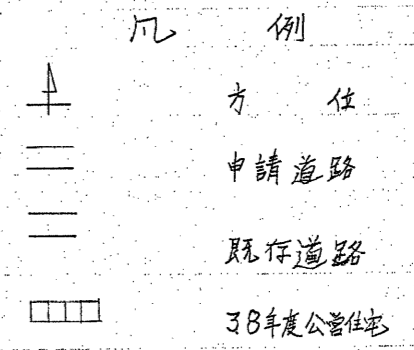 凡例
方位
申請道路
既存道路
38年度公営住宅